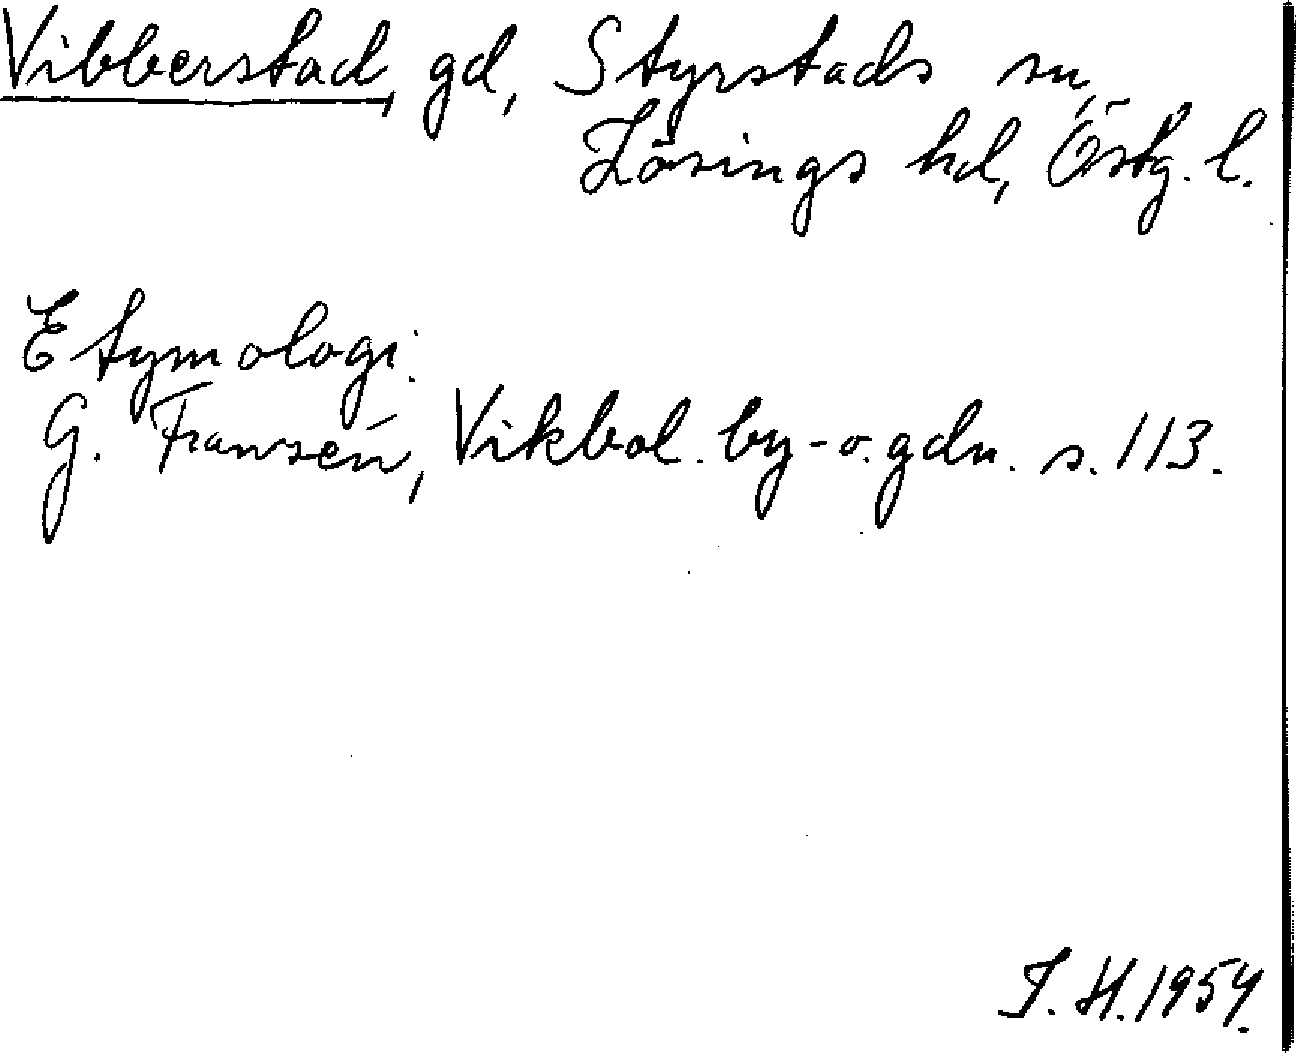 Vibberstad, gd, Styrstads sn,
Lösings hd, Östg. l.
Etymologi:
G. Fransén, Vikbol. by- o. gdn. s. 113.
I. H. 1954.